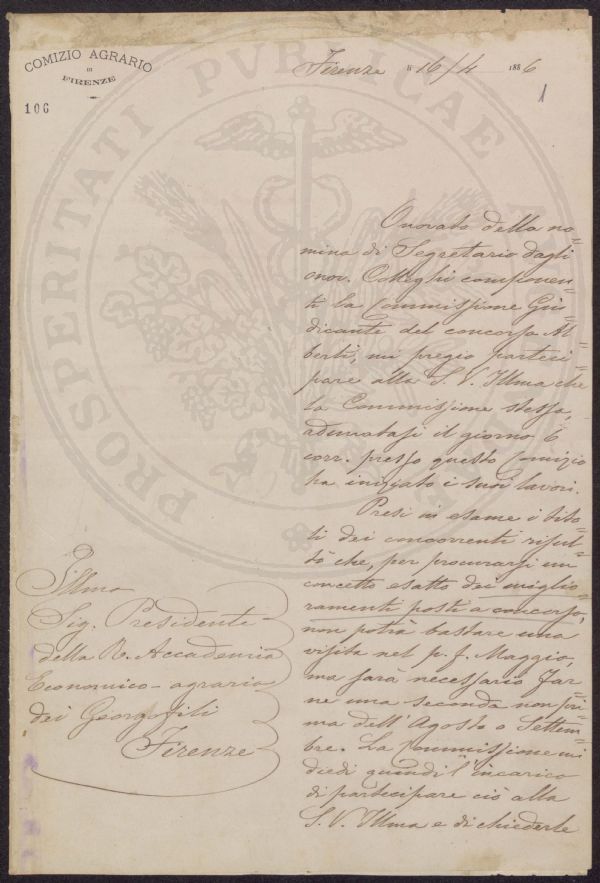 COMIZIO AGRARIO
DI
FIRENZE
106
Firenze li 16/4 1886
1
Onorato della no=
mina di Segretario dagli
onor. Colleghi componen=
ti la Commissione Giu=
dicante del concorso Al=
berti, mi pregio parteci=
pare alla S. V. Illma che
la Commissione stessa,
adunatasi il giorno 6
corr. presso questo Comizio
ha iniziato i suoi lavori.
Presi in esame i tito=
li dei concorrenti risul=
tò che, per procurarsi un
concetto esatto dei miglio=
ramenti posti a concorso,
non potrà bastare una
visita nel p. f. Maggio,
ma sarà necessario far=
ne una seconda non pri=
ma dell'Agosto o Settem=
bre. La Commissione mi
diedi quindi l'incarico
di partecipare ciò alla
S. V. Illma e di chiederle
Illmo
Sig. Presidente
della R. Accademia
Economico-agraria
dei Georgofili
Firenze
PROSPERITATI PUBLICAE